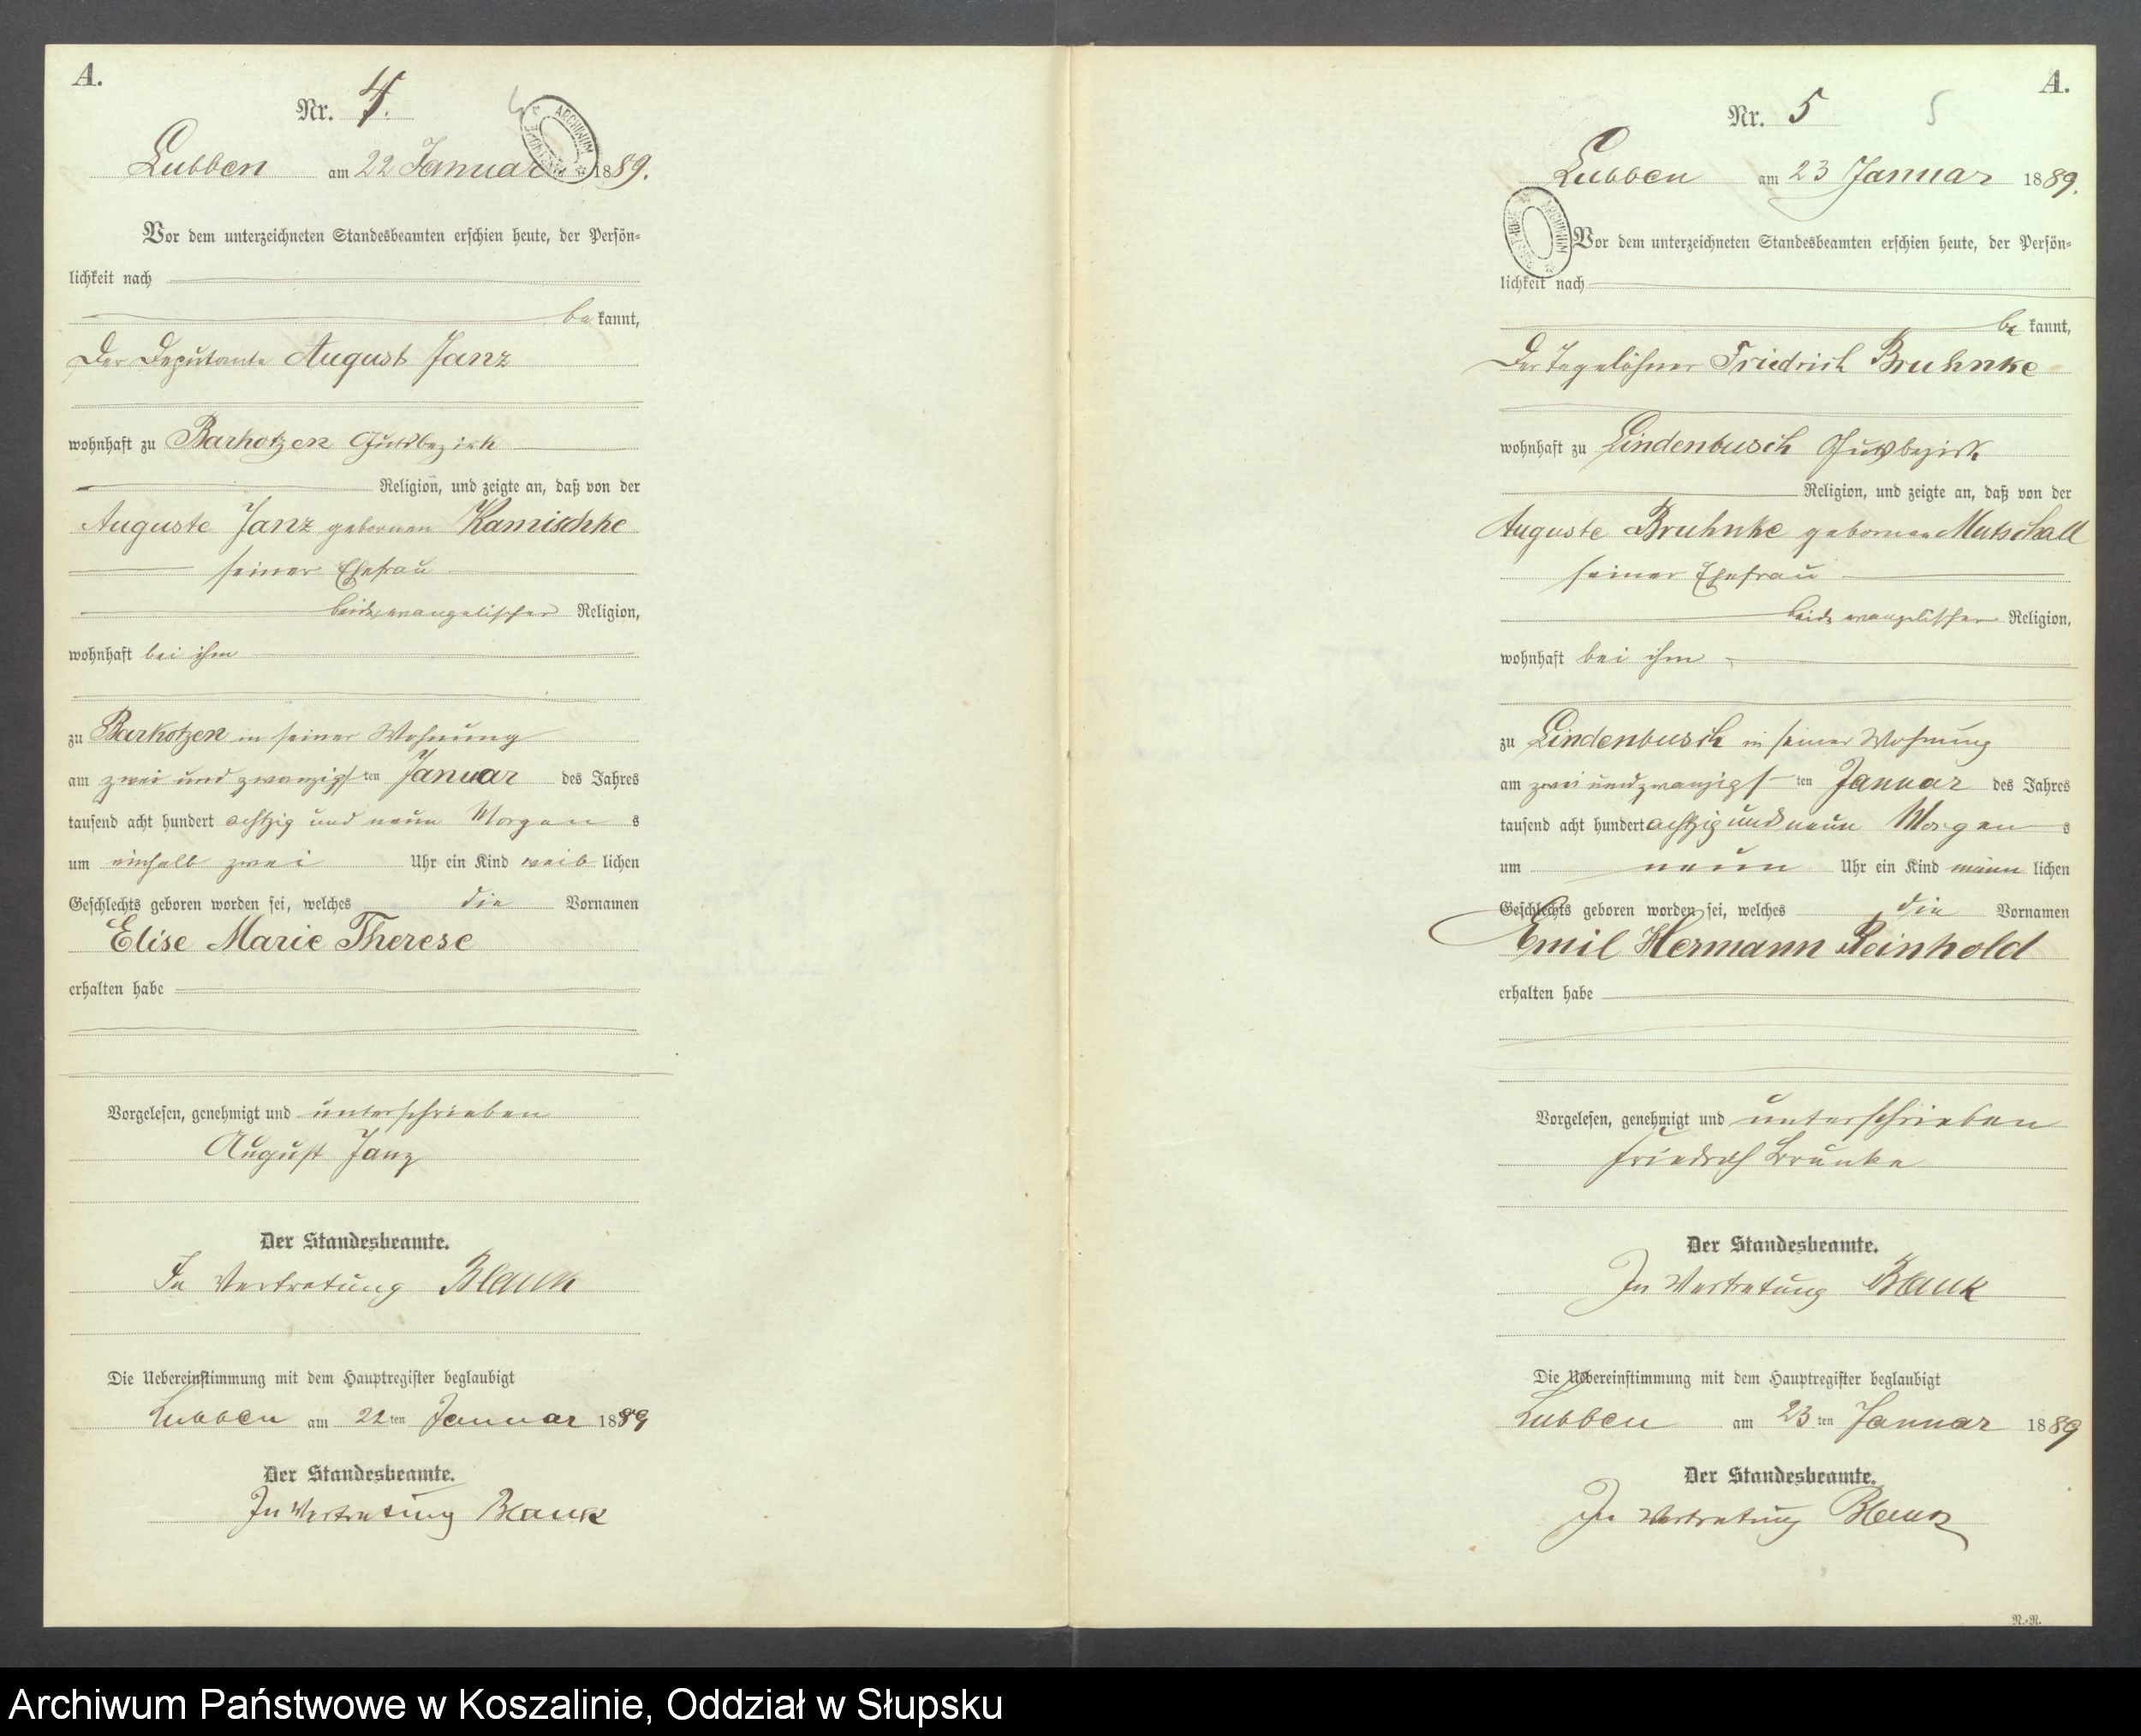 A.
Nr. 4.
Lubben am 22 Januar 1889.
Vor dem unterzeichneten Standesbeamten erschien heute, der Persön-
lichkeit nach
be kannt,
Der Deputante August Janz
wohnhaft zu Barkotzen Gutsbezirk
Religion, und zeigte an, daß von der
Auguste Janz gebornen Kamischke
seiner Ehefrau
beide evangelischer Religion,
wohnhaft bei ihm
zu Barkotzen in seiner Wohnung
am zwei und zwanzigsten Januar des Jahres
tausend acht hundert achtzig und neun Morgens
um einhalb zwei Uhr ein Kind weiblichen
Geschlechts geboren worden sei, welches die Vornamen
Elise Marie Therese
erhalten habe
Vorgelesen, genehmigt und unterschrieben
August Janz
Der Standesbeamte.
In Vertretung Blank
Die Uebereinstimmung mit dem Hauptregister beglaubigt
Lubben am 22ten Januar 1889
Der Standesbeamte.
In Vertretung Blank
A.
Nr. 5
5
Lubben am 23 Januar 1889.
ARCHIWUM
Vor dem unterzeichneten Standesbeamten erschien heute, der Persön-
lichkeit nach
be kannt,
Der Tagelöhner Friedrich Bruhnke
wohnhaft zu Lindenbusch Gutsbezirk
Religion, und zeigte an, daß von der
Auguste Bruhnke gebornen Mutschall
seiner Ehefrau
beide evangelischer Religion,
wohnhaft bei ihm
zu Lindenbusch in seiner Wohnung
am zwei und zwanzigsten Januar des Jahres
tausend acht hundert achtzig und neun Morgens
um neun Uhr ein Kind männlichen
Geschlechts geboren worden sei, welches die Vornamen
Emil Hermann Reinhold
erhalten habe
Vorgelesen, genehmigt und unterschrieben
Friedrich Brunke
Der Standesbeamte.
In Vertretung Blank
Die Uebereinstimmung mit dem Hauptregister beglaubigt
Lubben am 23ten Januar 1889
Der Standesbeamte.
In Vertretung Blank
R.-R.
Archiwum Państwowe w Koszalinie, Oddział w Słupsku